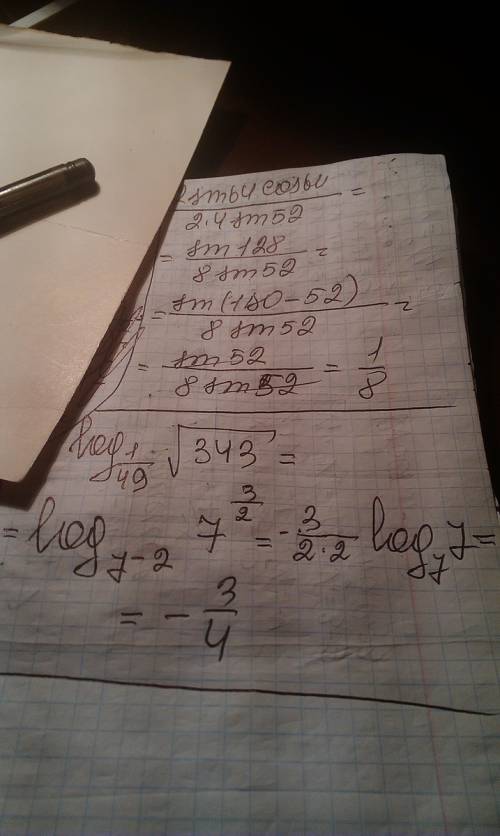 2 sin 64 cos 64 / 2·4 sin 52 =
= sin 128 / 8 sin 52 =
= sin (180 - 52) / 8 sin 52 =
= sin 52 / 8 sin 52 = 1/8
log_{1/49} √343 =
= log_{7^{-2}} 7^{3/2} = -3/(2·2) log_7 7 =
= -3/4